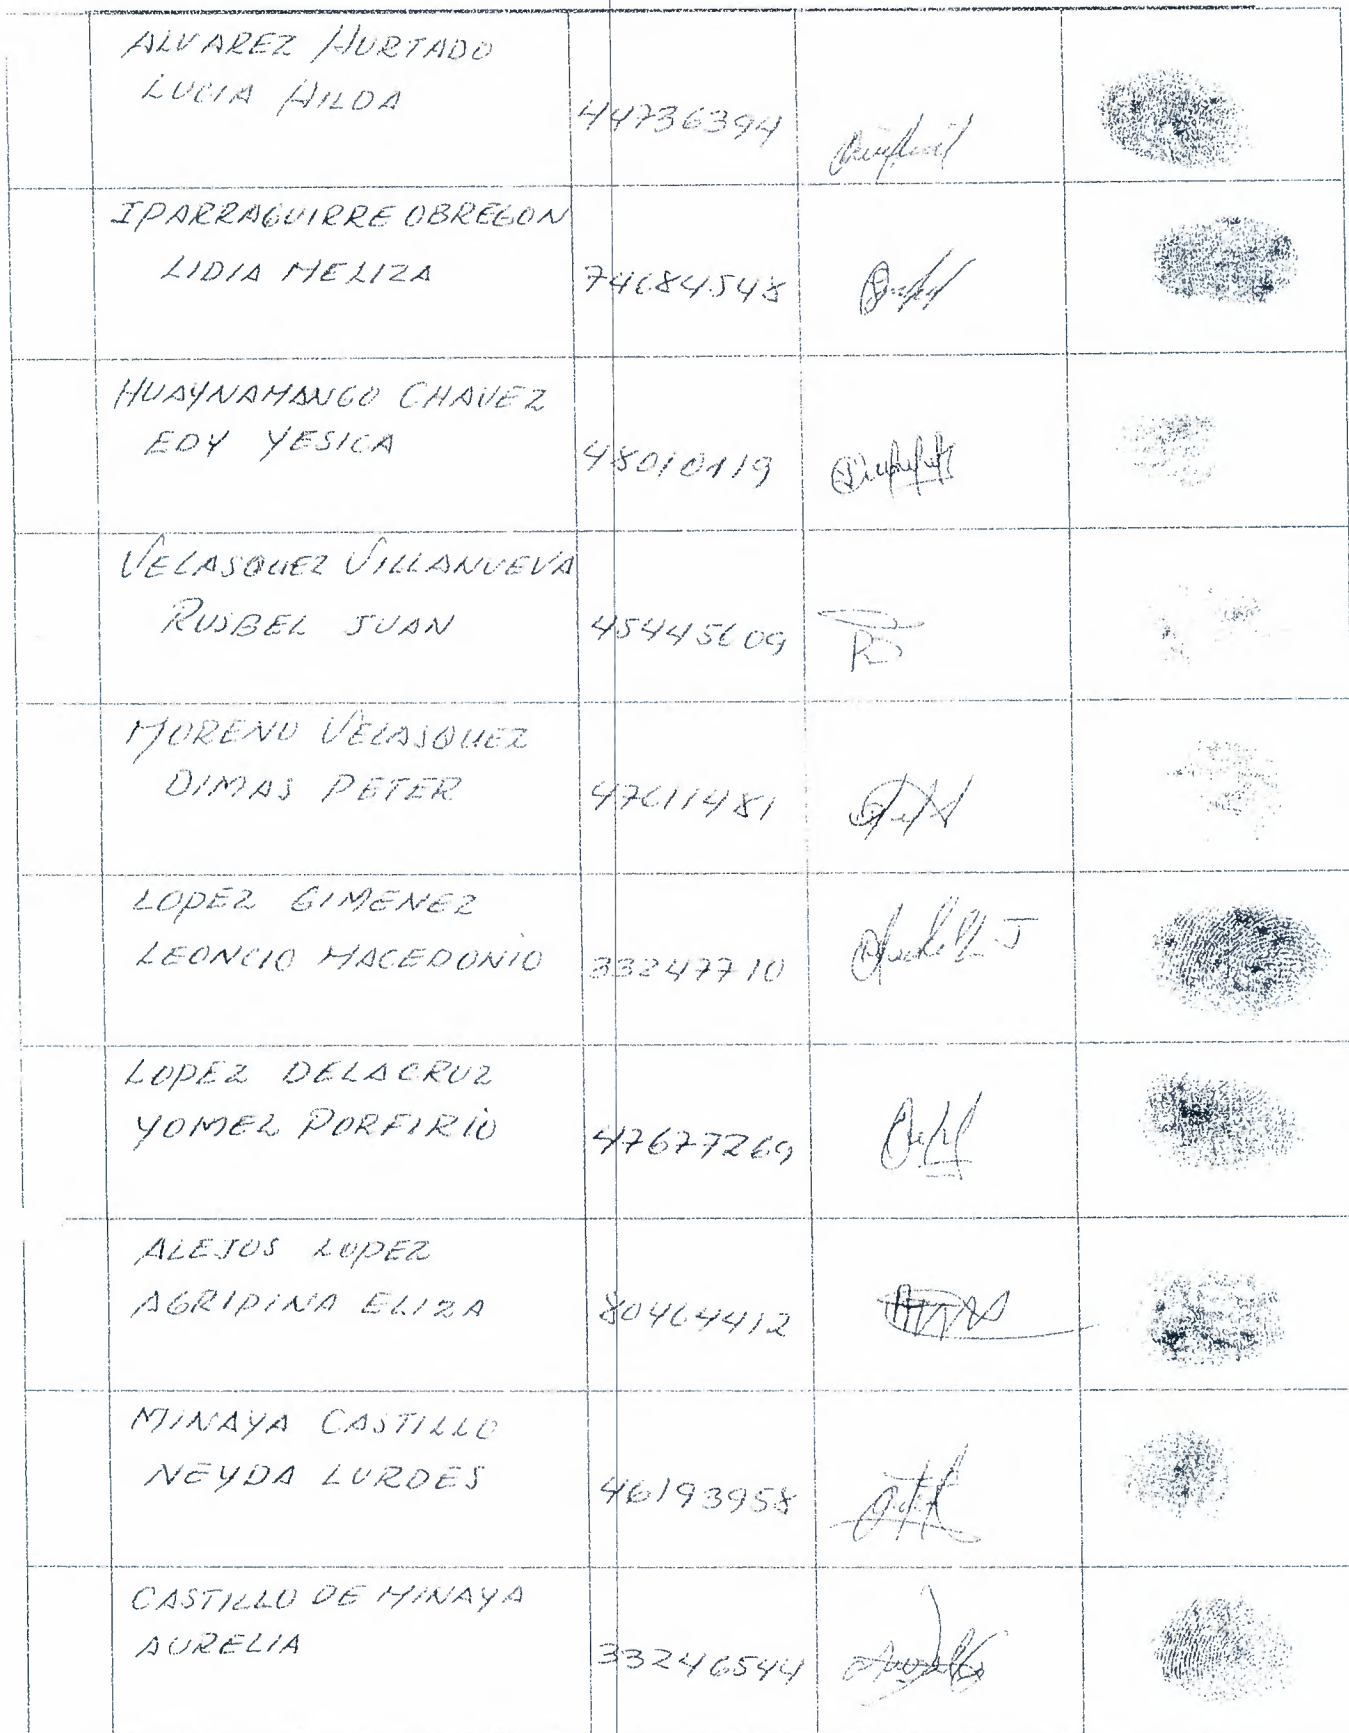 ALVAREZ HURTADO
LUCIA HILDA
44736394
IPARRAGUIRRE OBREGON
LIDIA MELIZA
74684548
HUAYNAMANGO CHAVEZ
EDY YESICA
48010119
VELASQUEZ VILLANUEVA
RUSBEL JUAN
45445609
MORENO VELASQUEZ
DIMAS PETER
47611481
LOPEZ GIMENEZ
LEONCIO MACEDONIO
33247710
LOPEZ DELACRUZ
YOMEL PORFIRIO
47677269
ALEJOS LOPEZ
AGRIPINA ELIZA
80464412
MINAYA CASTILLO
NEYDA LURDES
46193958
CASTILLO DE MINAYA
AURELIA
33246544